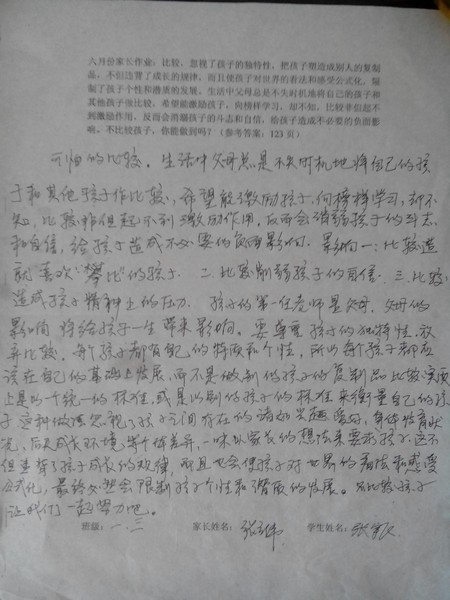 六月份家长作业：比较，忽视了孩子的独特性，把孩子塑造成别人的复制
品，不但违背了成长的规律，而且使孩子对世界的看法和感受公式化，限
制了孩子个性和潜质的发展。生活中父母总是不失时机地将自己的孩子和
其他孩子做比较，希望能激励孩子，向榜样学习，却不知，比较非但起不
到激励作用，反而会消磨孩子的斗志和自信，给孩子造成不必要的负面影
响，不比较孩子，你能做到吗？（参考答案：123 页）
可怕的比较。生活中父母总是不失时机地将自己的孩
子和其他孩子作比较，希望能激励孩子，向榜样学习，却不
知，比较非但起不到激励作用，反而会消弱孩子的斗志
和自信，给孩子造成不必要的负面影响。影响一：比较造
就喜欢“攀比”的孩子。二.比较削弱孩子的自信。三.比较
造成孩子精神上的压力。孩子的第一任老师是父母，父母的
影响将给孩子一生带来影响。要尊重孩子的独特性，放
弃比较，每个孩子都有自己的特质和个性，所以每个孩子都应
该在自己的基础上发展，而不是做别的孩子的复制品。比较实质
上是以一个统一的标准，或是以别的孩子的标准来衡量自己的孩
子，这种做法忽视了孩子之间存在的诸如兴趣爱好，身体发育状
况，后天成长环境等个体差异，一味以家长的想法来要求孩子，这不
但违背了孩子成长的规律，而且也会使孩子对世界的看法和感受
公式化，最终必然会限制孩子个性和潜质的发展。不比较孩子
让我们一起努力吧。
班级：一.三 家长姓名：张 学生姓名：张